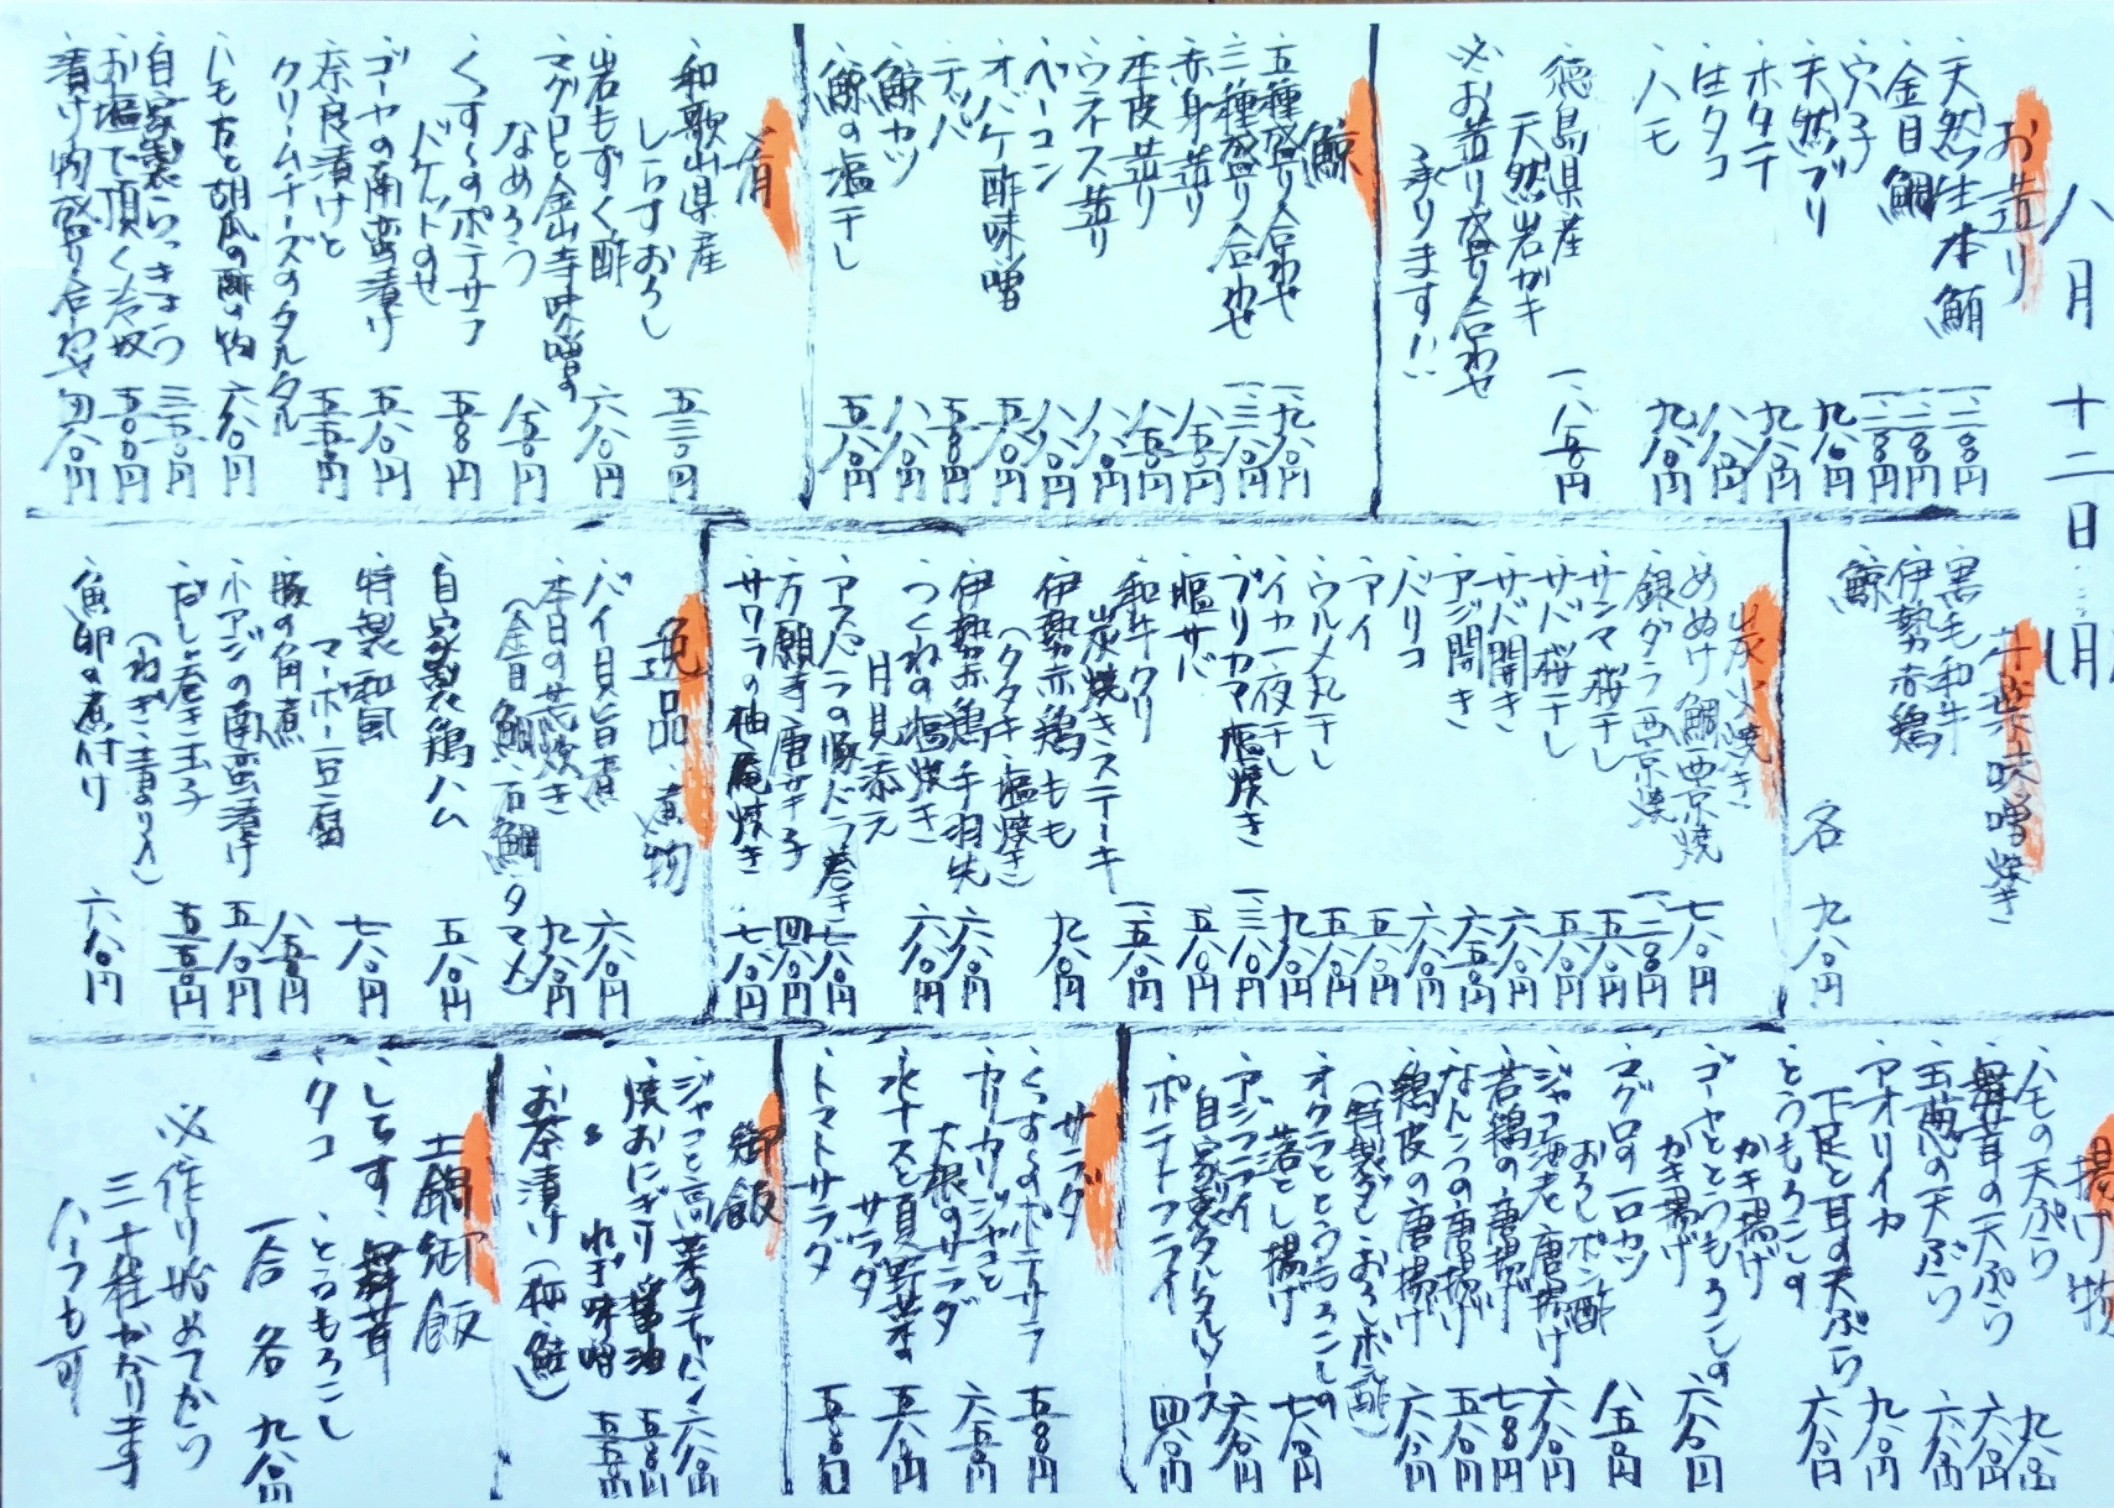 八月十二日(月)
お造り
、天然生本鮪 一、二八〇円
、金目鯛 一、二八〇円
、穴子 一、二八〇円
、天然ブリ 九八〇円
、ホタテ 九八〇円
、生タコ 八八〇円
、ハモ 九八〇円
、徳島県産
天然岩ガキ 一、八五〇円
※お造り盛り合わせ
承ります!!
鯨
、五種盛り合わせ 一、九八〇円
、三種盛り合わせ 一、三八〇円
、赤身造り 八五〇円
、本皮造り 八五〇円
、ウネス造り 八八〇円
、ベーコン 八八〇円
、オバケ酢味噌 五八〇円
、テッパ 五五〇円
、鯨カツ 八八〇円
、鯨の塩干し 五八〇円
肴
、和歌山県産
しらすおろし 五三〇円
、岩もずく酢 六八〇円
、マグロと金山寺味噌の
なめろう 八五〇円
、くっす〜のポテサラ
バケットのせ 五五〇円
、ゴーヤの南蛮漬け 五八〇円
、奈良漬けと
クリームチーズのタルタル 五五〇円
、ハモ皮と胡瓜の酢の物 六八〇円
、自家製らっきょう 三五〇円
、お塩で頂く冷奴 五〇〇円
、漬け物盛り合わせ 四八〇円
朴葉味噌焼き
、黒毛和牛
、伊勢赤鶏
、鯨
各 九八〇円
炭火焼き
、めぬけ鯛西京焼 七八〇円
、銀ダラ西京焼 一、二八〇円
、サンマ桜干し 五八〇円
、サバ桜干し 五八〇円
、サバ開き 六八〇円
、アジ開き 六五〇円
、バリコ 六八〇円
、アイ 五八〇円
、ウルメ丸干し 五八〇円
、イカ一夜干し 九八〇円
、ブリカマ塩焼き 一、三八〇円
、塩サバ 五八〇円
、和牛クリ
炭焼きステーキ 一、五八〇円
、伊勢赤鶏もも
(タタキ・塩焼き) 九八〇円
、伊勢赤鶏手羽先 六八〇円
、つくねの塩焼き
月見添え 六八〇円
、アスパラの豚バラ巻き 七八〇円
、万願寺唐辛子 四八〇円
、サワラの柚庵焼き 七八〇円
逸品・煮物
、バイ貝旨煮 六八〇円
、本日の荒炊き 九八〇円
(金目鯛・石鯛・タマメ)
、自家製鶏ハム 五八〇円
、特製和風
マーボー豆腐 七八〇円
、豚の角煮 八五〇円
、小アジの南蛮漬け 五八〇円
、だし巻き玉子 五五〇円
(ねぎ・青のり入)
、魚卵の煮付け 六八〇円
揚げ物
、ハモの天ぷら 九八〇円
、舞茸の天ぷら 六八〇円
、玉葱の天ぷら 六八〇円
、アオリイカ
下足と耳の天ぷら 九八〇円
、とうもろこしの
かき揚げ 六八〇円
、ゴーヤととうもろこしの
かき揚げ 六八〇円
、マグロの一口カツ
おろしポン酢 八五〇円
、ジャコ海老唐揚げ 六八〇円
、若鶏の唐揚げ 七八〇円
、なんこつの唐揚げ 五八〇円
、鶏皮の唐揚げ 六八〇円
(特製ダレ・おろしポン酢)
、オクラととうもろこしの
落とし揚げ 七八〇円
、アジフライ
自家製タルタルソース 六八〇円
、ポテトフライ 四八〇円
サラダ
、くっす〜のポテサラ 五五〇円
、カリカリジャコと
大根のサラダ 六五〇円
、水ナスと夏野菜の
サラダ 五八〇円
、トマトサラダ 五五〇円
御飯
、ジャコと高菜のチャーハン 六八〇円
、焼おにぎり 醤油 五五〇円
〃 ねぎ味噌 五五〇円
、お茶漬け(梅・鮭)
土鍋御飯
、しらす、舞茸
、タコ、とうもろこし
一合 各 九八〇円
※作り始めてから
三十程かかります
ハーフも可